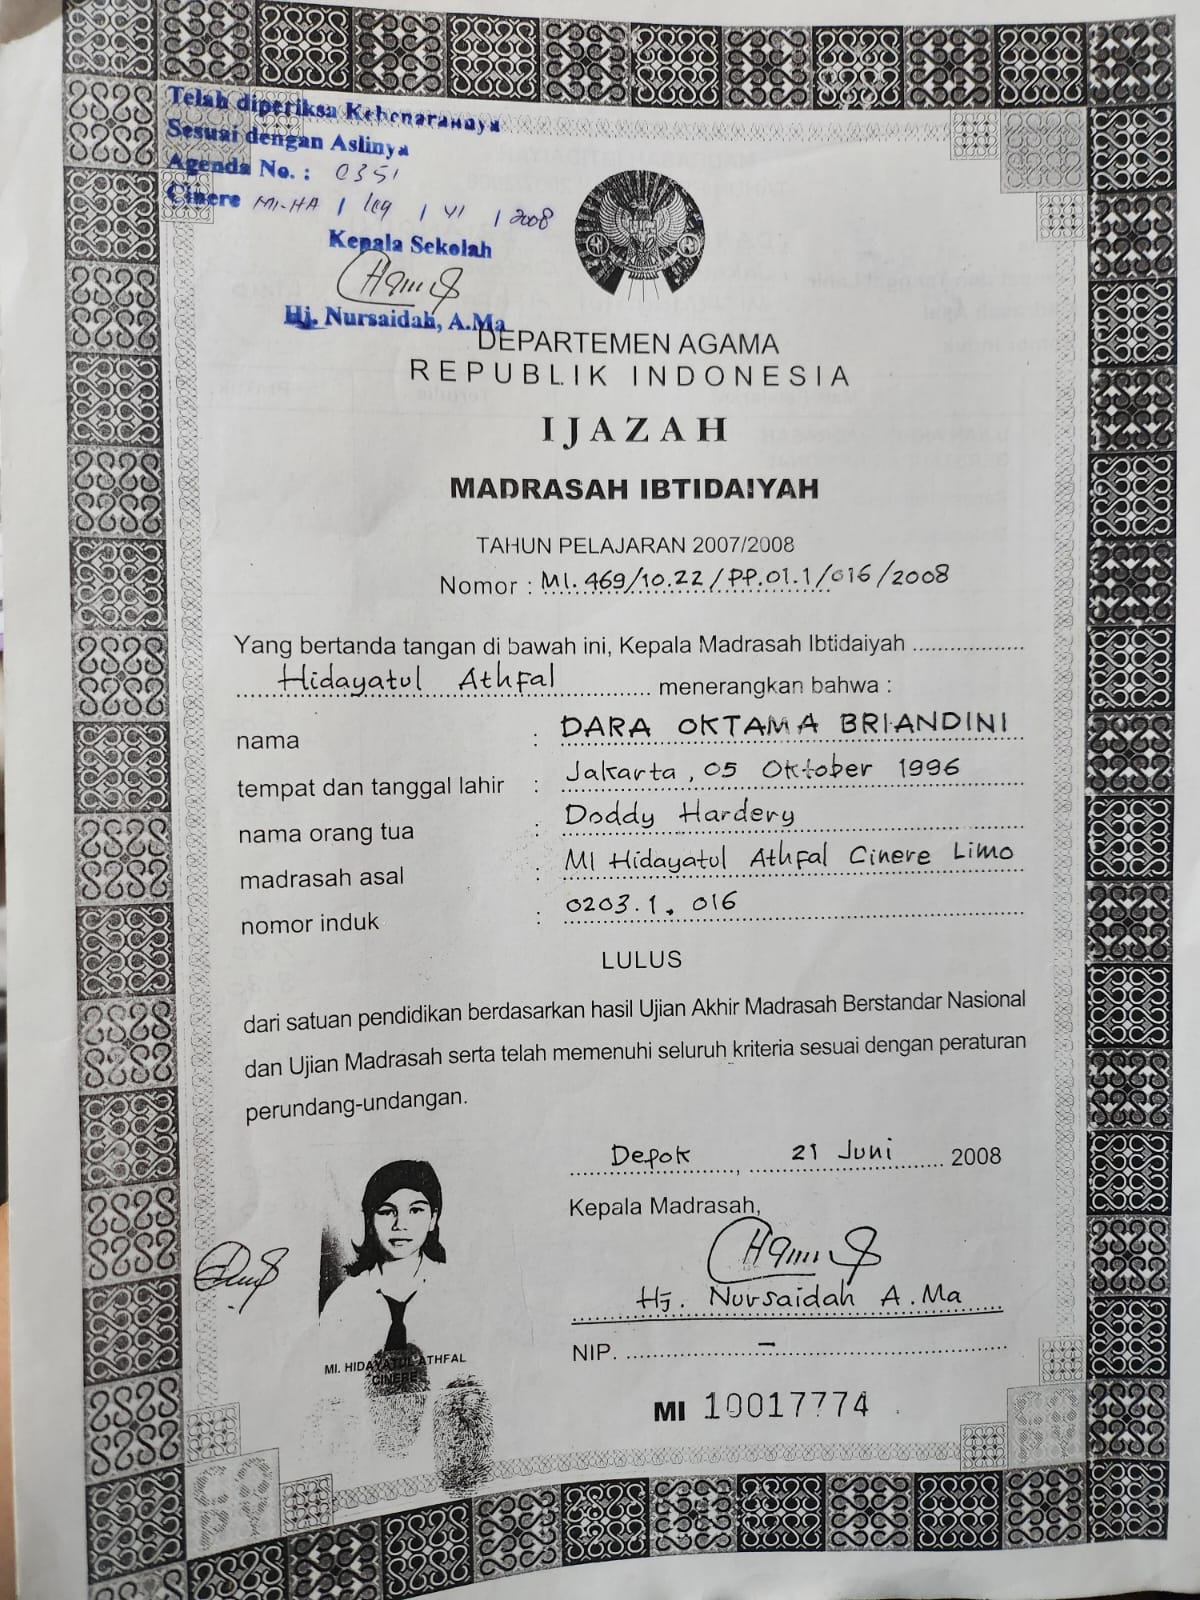 Telah diperiksa Kebenarannya
Sesuai dengan Aslinya
Agenda No. : 0351
Cinere MI-HA / / VI / 2008
Kepala Sekolah
Hj. Nursaidah, A.Ma
DEPARTEMEN AGAMA
REPUBLIK INDONESIA
IJAZAH
MADRASAH IBTIDAIYAH
TAHUN PELAJARAN 2007/2008
Nomor : MI. 469/10.22/PP.01.1/016/2008
Yang bertanda tangan di bawah ini, Kepala Madrasah Ibtidaiyah
Hidayatul Athfal menerangkan bahwa :
nama : DARA OKTAMA BRIANDINI
tempat dan tanggal lahir : Jakarta, 05 Oktober 1996
nama orang tua : Doddy Hardery
madrasah asal : MI Hidayatul Athfal Cinere Limo
nomor induk : 0203.1. 016
LULUS
dari satuan pendidikan berdasarkan hasil Ujian Akhir Madrasah Berstandar Nasional
dan Ujian Madrasah serta telah memenuhi seluruh kriteria sesuai dengan peraturan
perundang-undangan.
Depok, 21 Juni 2008
Kepala Madrasah,
Hj. Nursaidah A.Ma
NIP. –
MI. HIDAYATUL ATHFAL
CINERE
MI 10017774
COPY